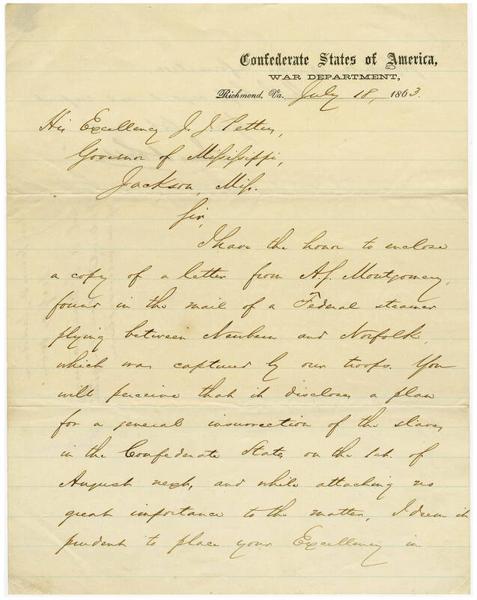 Confederate States of America,
WAR DEPARTMENT,
Richmond, Va. July 18, 1863
His Excellency J. J. Pettus,
Governor of Mississippi,
Jackson, Miss.
Sir,
I have the honor to enclose
a copy of a letter from Montgomery,
found in the mail of a Federal steamer
plying between Newbern and Norfolk,
which was captured by our troops. You
will perceive that it discloses a plan
for a general insurrection of the slaves
in the Confederate States on the 1st of
August next, and while attaching no
great importance to the matter, I deem it
prudent to place your Excellency in